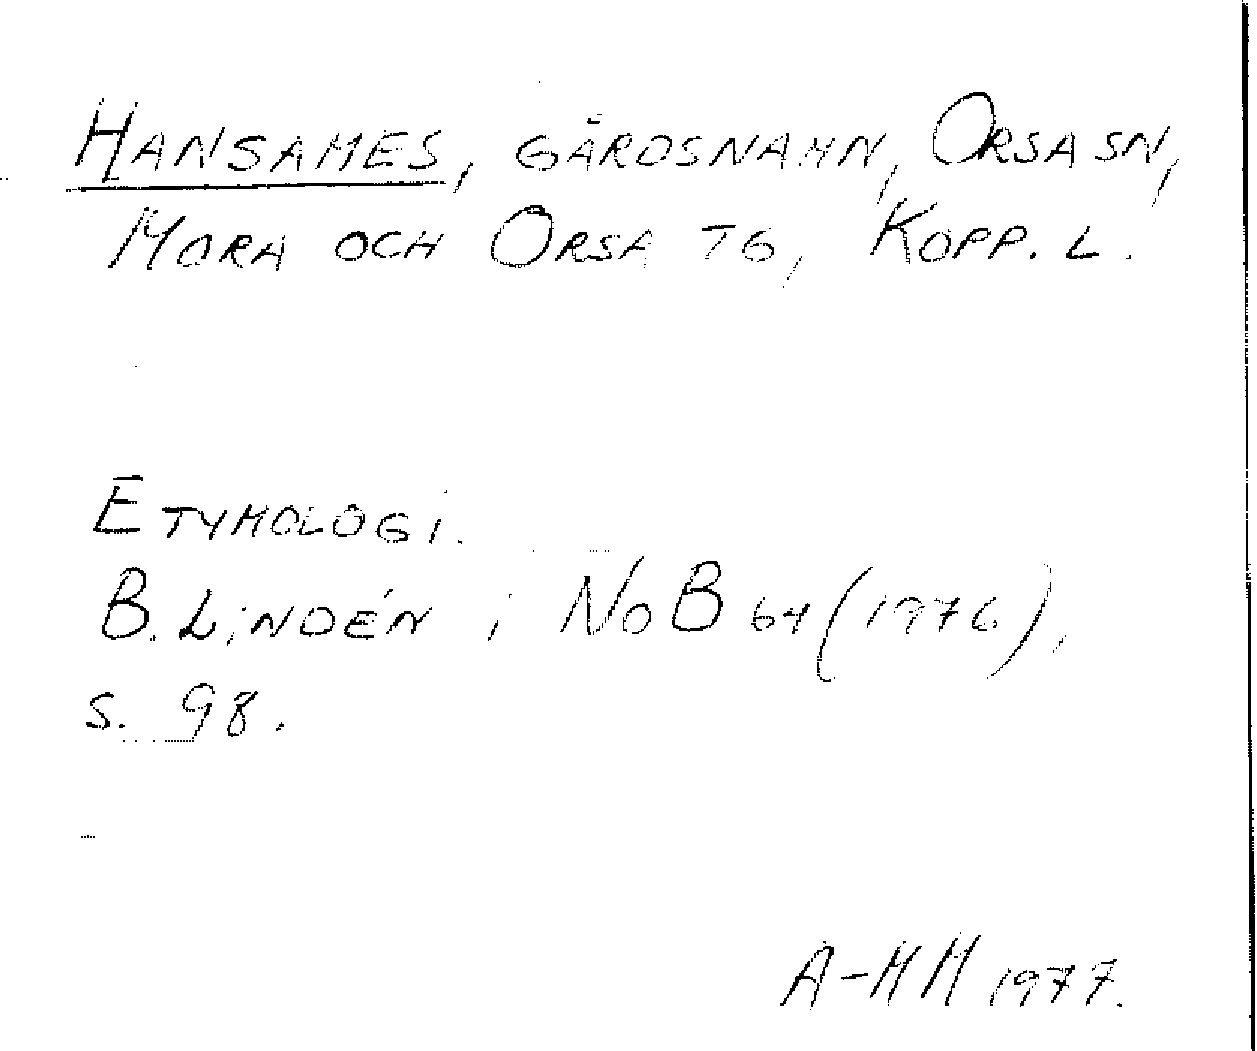 HANSAMES, GÅRDSNAMN, ORSA SN,
MORA OCH ORSA TG, KOPP. L.
ETYMOLOGI.
B. LINDÉN i NoB 64 (1976),
s. 98.
A-MM 1977.